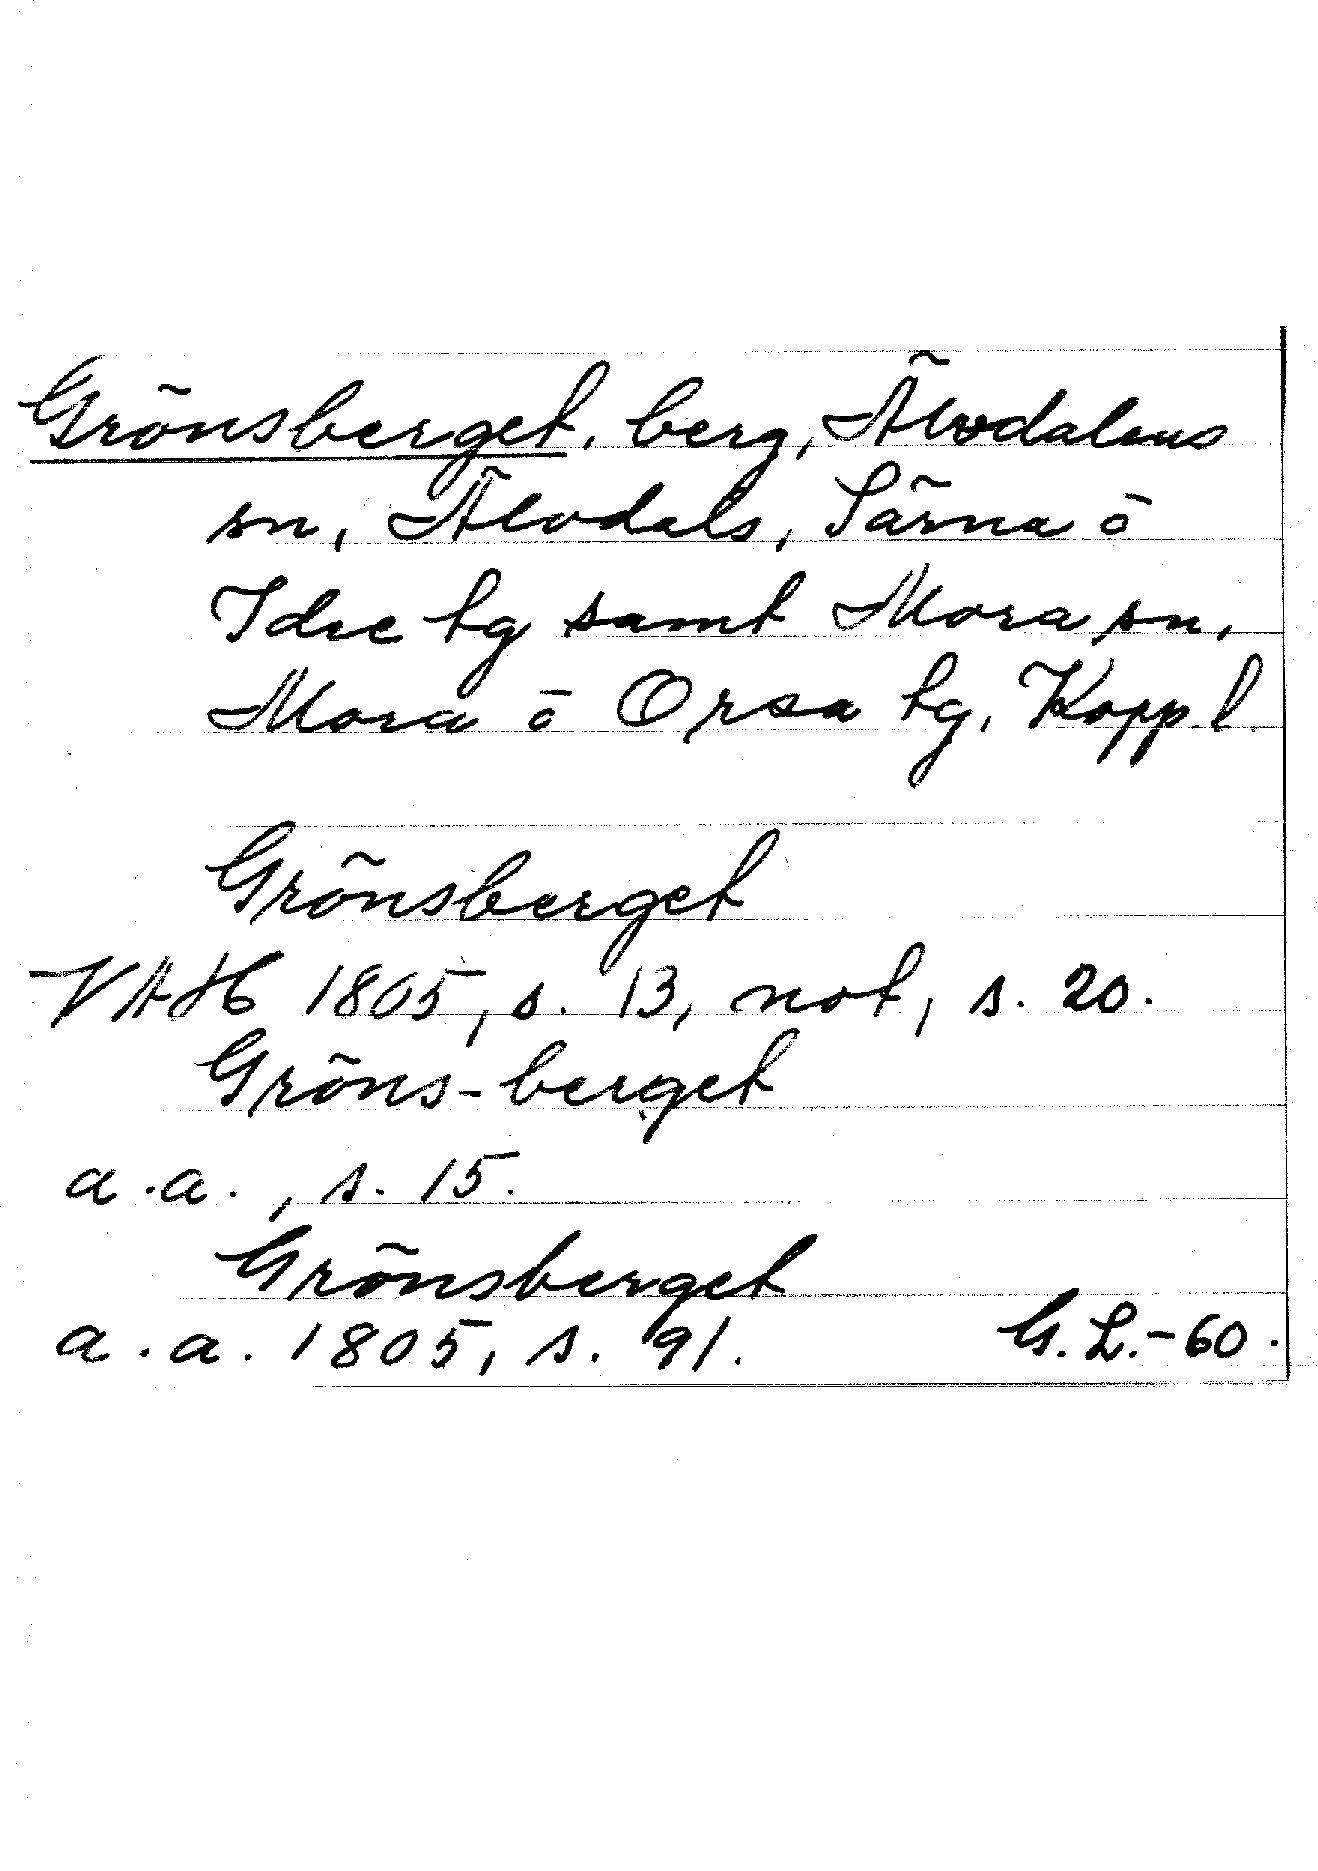 Grönsberget, berg, Älvdalens
sn, Älvdals, Särna o
Idre tg samt Mora sn,
Mora o Orsa tg, Kopp l
Grönsberget
VAH 1805, s. 13, not, s. 20.
Gröns-berget
a.a., s. 15.
Grönsberget
a.a. 1805, s. 91. G.L.-60.